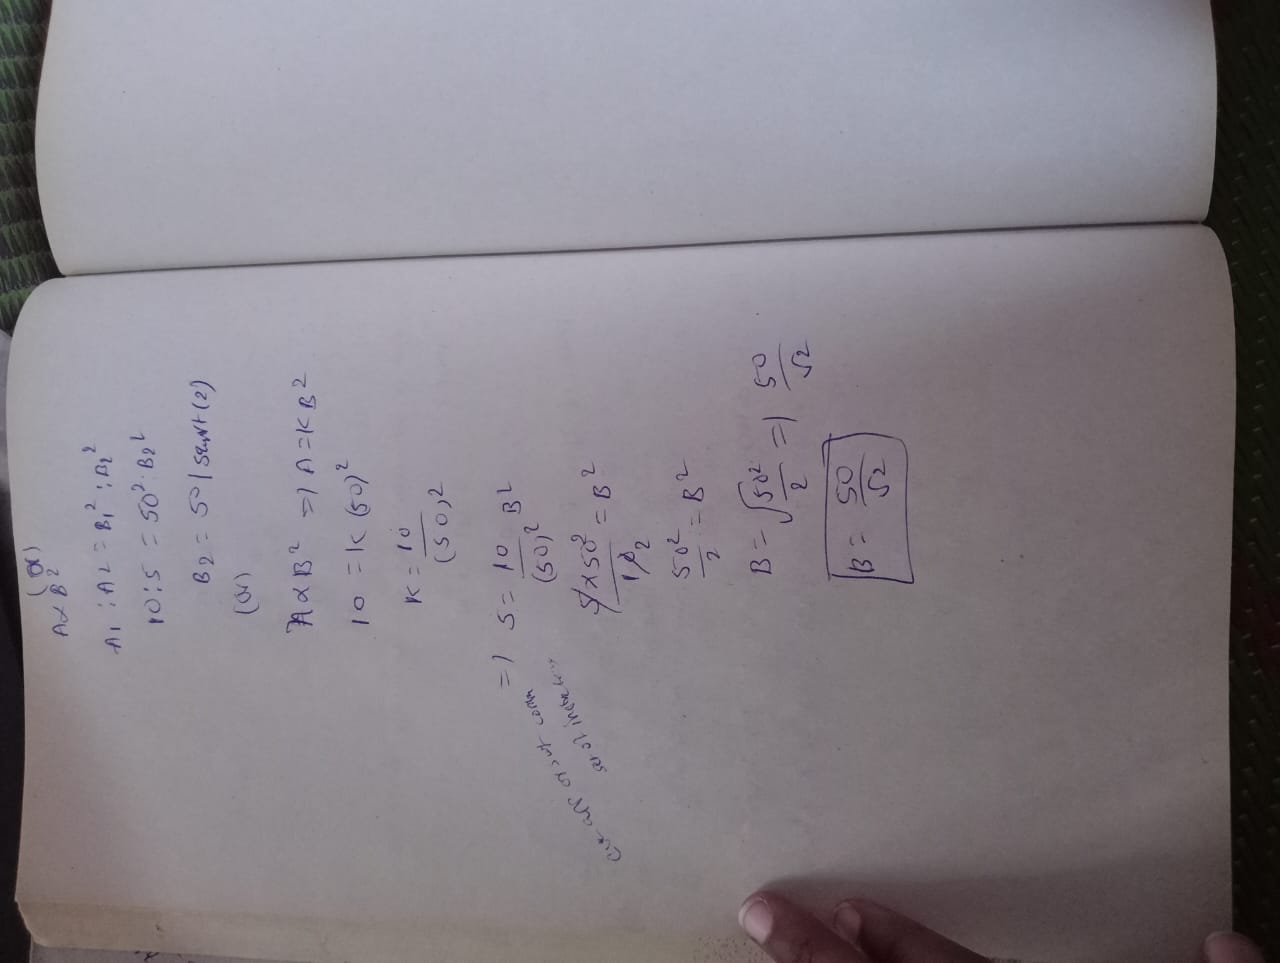 (or)
A ∝ B²
A₁ : A₂ = B₁² : B₂²
10 : 5 = 50² : B₂²
B₂ = 50 / sqrt(2)
(or)
A ∝ B² ⇒ A = KB²
10 = K (50)²
K = 10/(50)²
⇒ 5 = 10/(50)² B²
5 × 50²/10 2 = B²
50²/2 = B²
B = √50²/2 ⇒ 50/√2
B = 50/√2